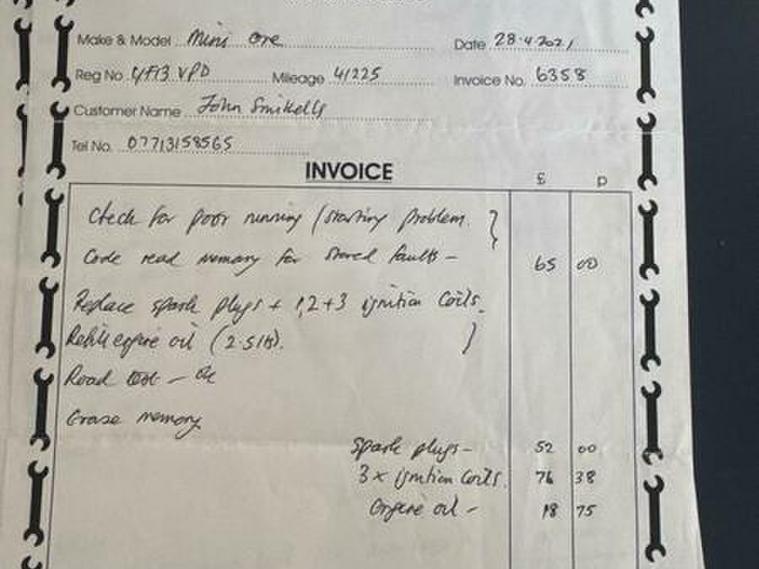 Make & Model Mini One Date 28.4.2021
Reg No. YF13 VPD Mileage 41225 Invoice No. 6358
Customer Name John
Tel No. 07713158565
INVOICE
£ p
Check for poor running / starting problem.
Code read memory for stored faults - 65 00
Replace spark plugs + 1,2+3 ignition coils.
Refill engine oil (2.5 lts).
Road test - ok
Erase memory
Spark plugs - 52 00
3 x ignition coils. 76 38
Engine oil - 18 75